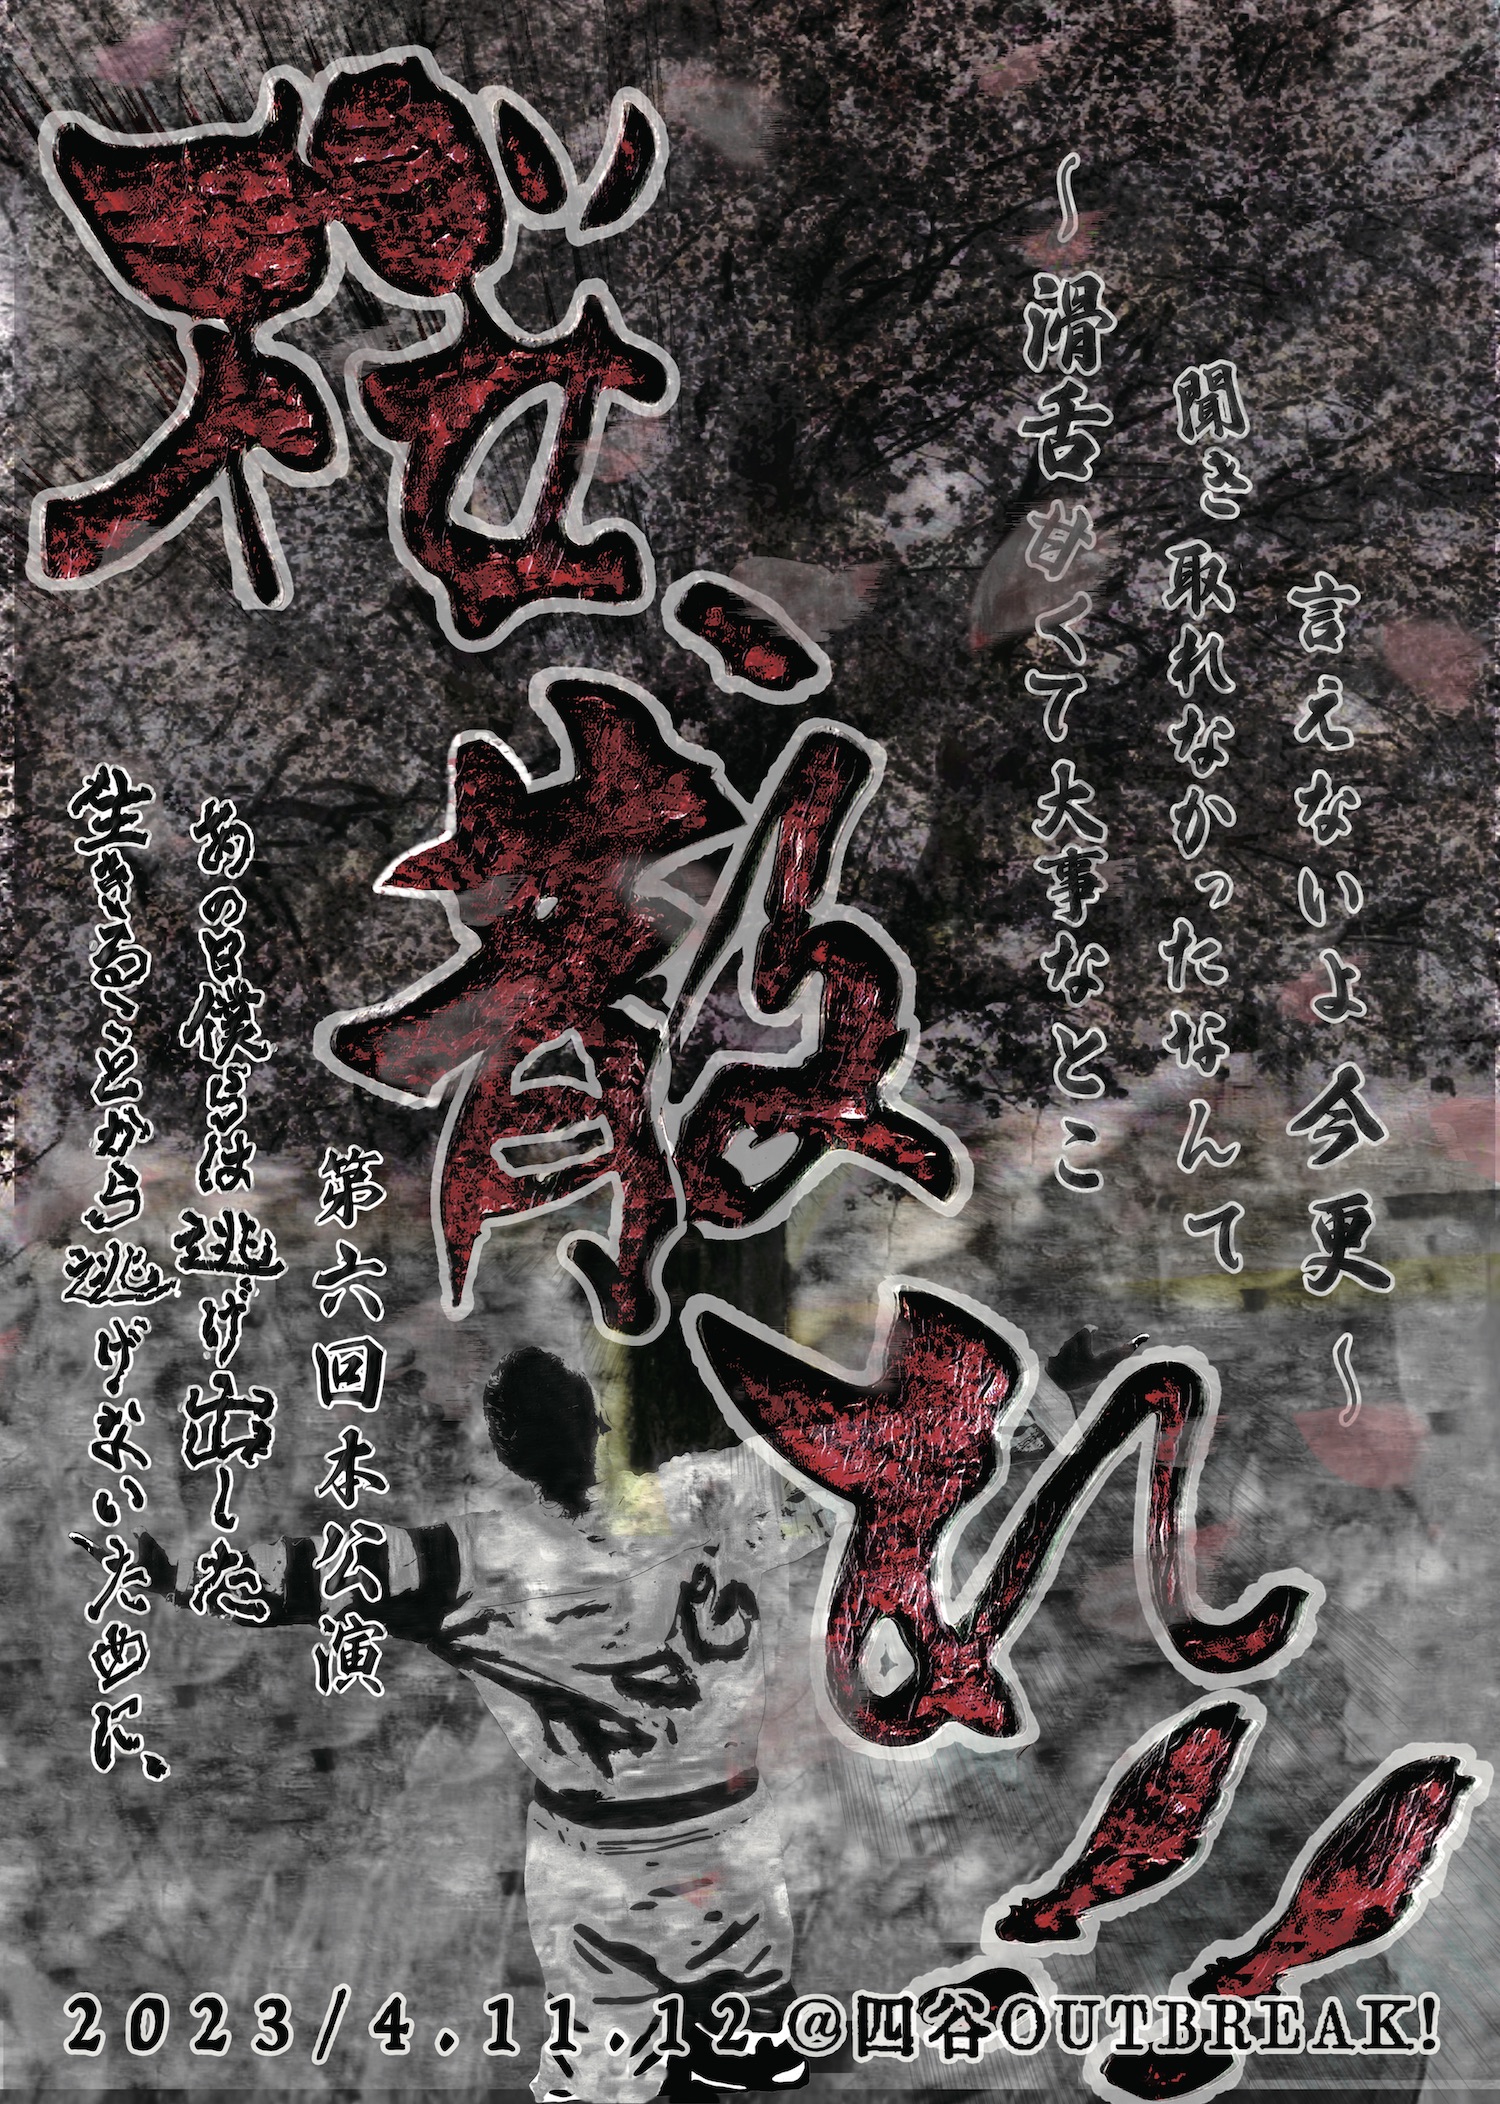 桜、散れ!!
〜滑舌甘くて大事なとこ
聞き取れなかったなんて
言えないよ今更〜
第六回本公演
あの日僕らは逃げ出した
生きることから逃げないために、
2023/4.11.12@四谷OUTBREAK!